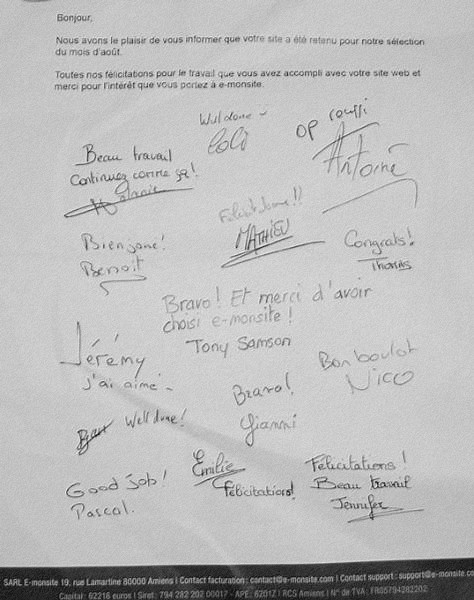 Bonjour,
Nous avons le plaisir de vous informer que votre site a été retenu pour notre sélection
du mois d'août.
Toutes nos félicitations pour le travail que vous avez accompli avec votre site web et
merci pour l'intérêt que vous portez à e-monsite.
Well done
Loïc
OP
Antoine
Beau travail
Continuez comme ça!
Félicitations!!
MATHIEU
Bien joué!
Benoit
Congrats!
Thomas
Bravo! Et merci d'avoir
choisi e-monsite!
Tony Samson
Jérémy
J'ai aimé
Bon boulot
Nico
Bravo!
Gianni
Well done!
Good job!
Pascal.
Émilie
Félicitations!
Félicitations!
Beau travail
Jennifer
SARL E-monsite 19, rue Lamartine 80000 Amiens | Contact facturation : contact@e-monsite.com | Contact support : support@e-monsite.co
Capital : 62216 euros | Siret : 794 282 202 00017 - APE : 6201Z | RCS Amiens | N° de TVA : FR05794282202